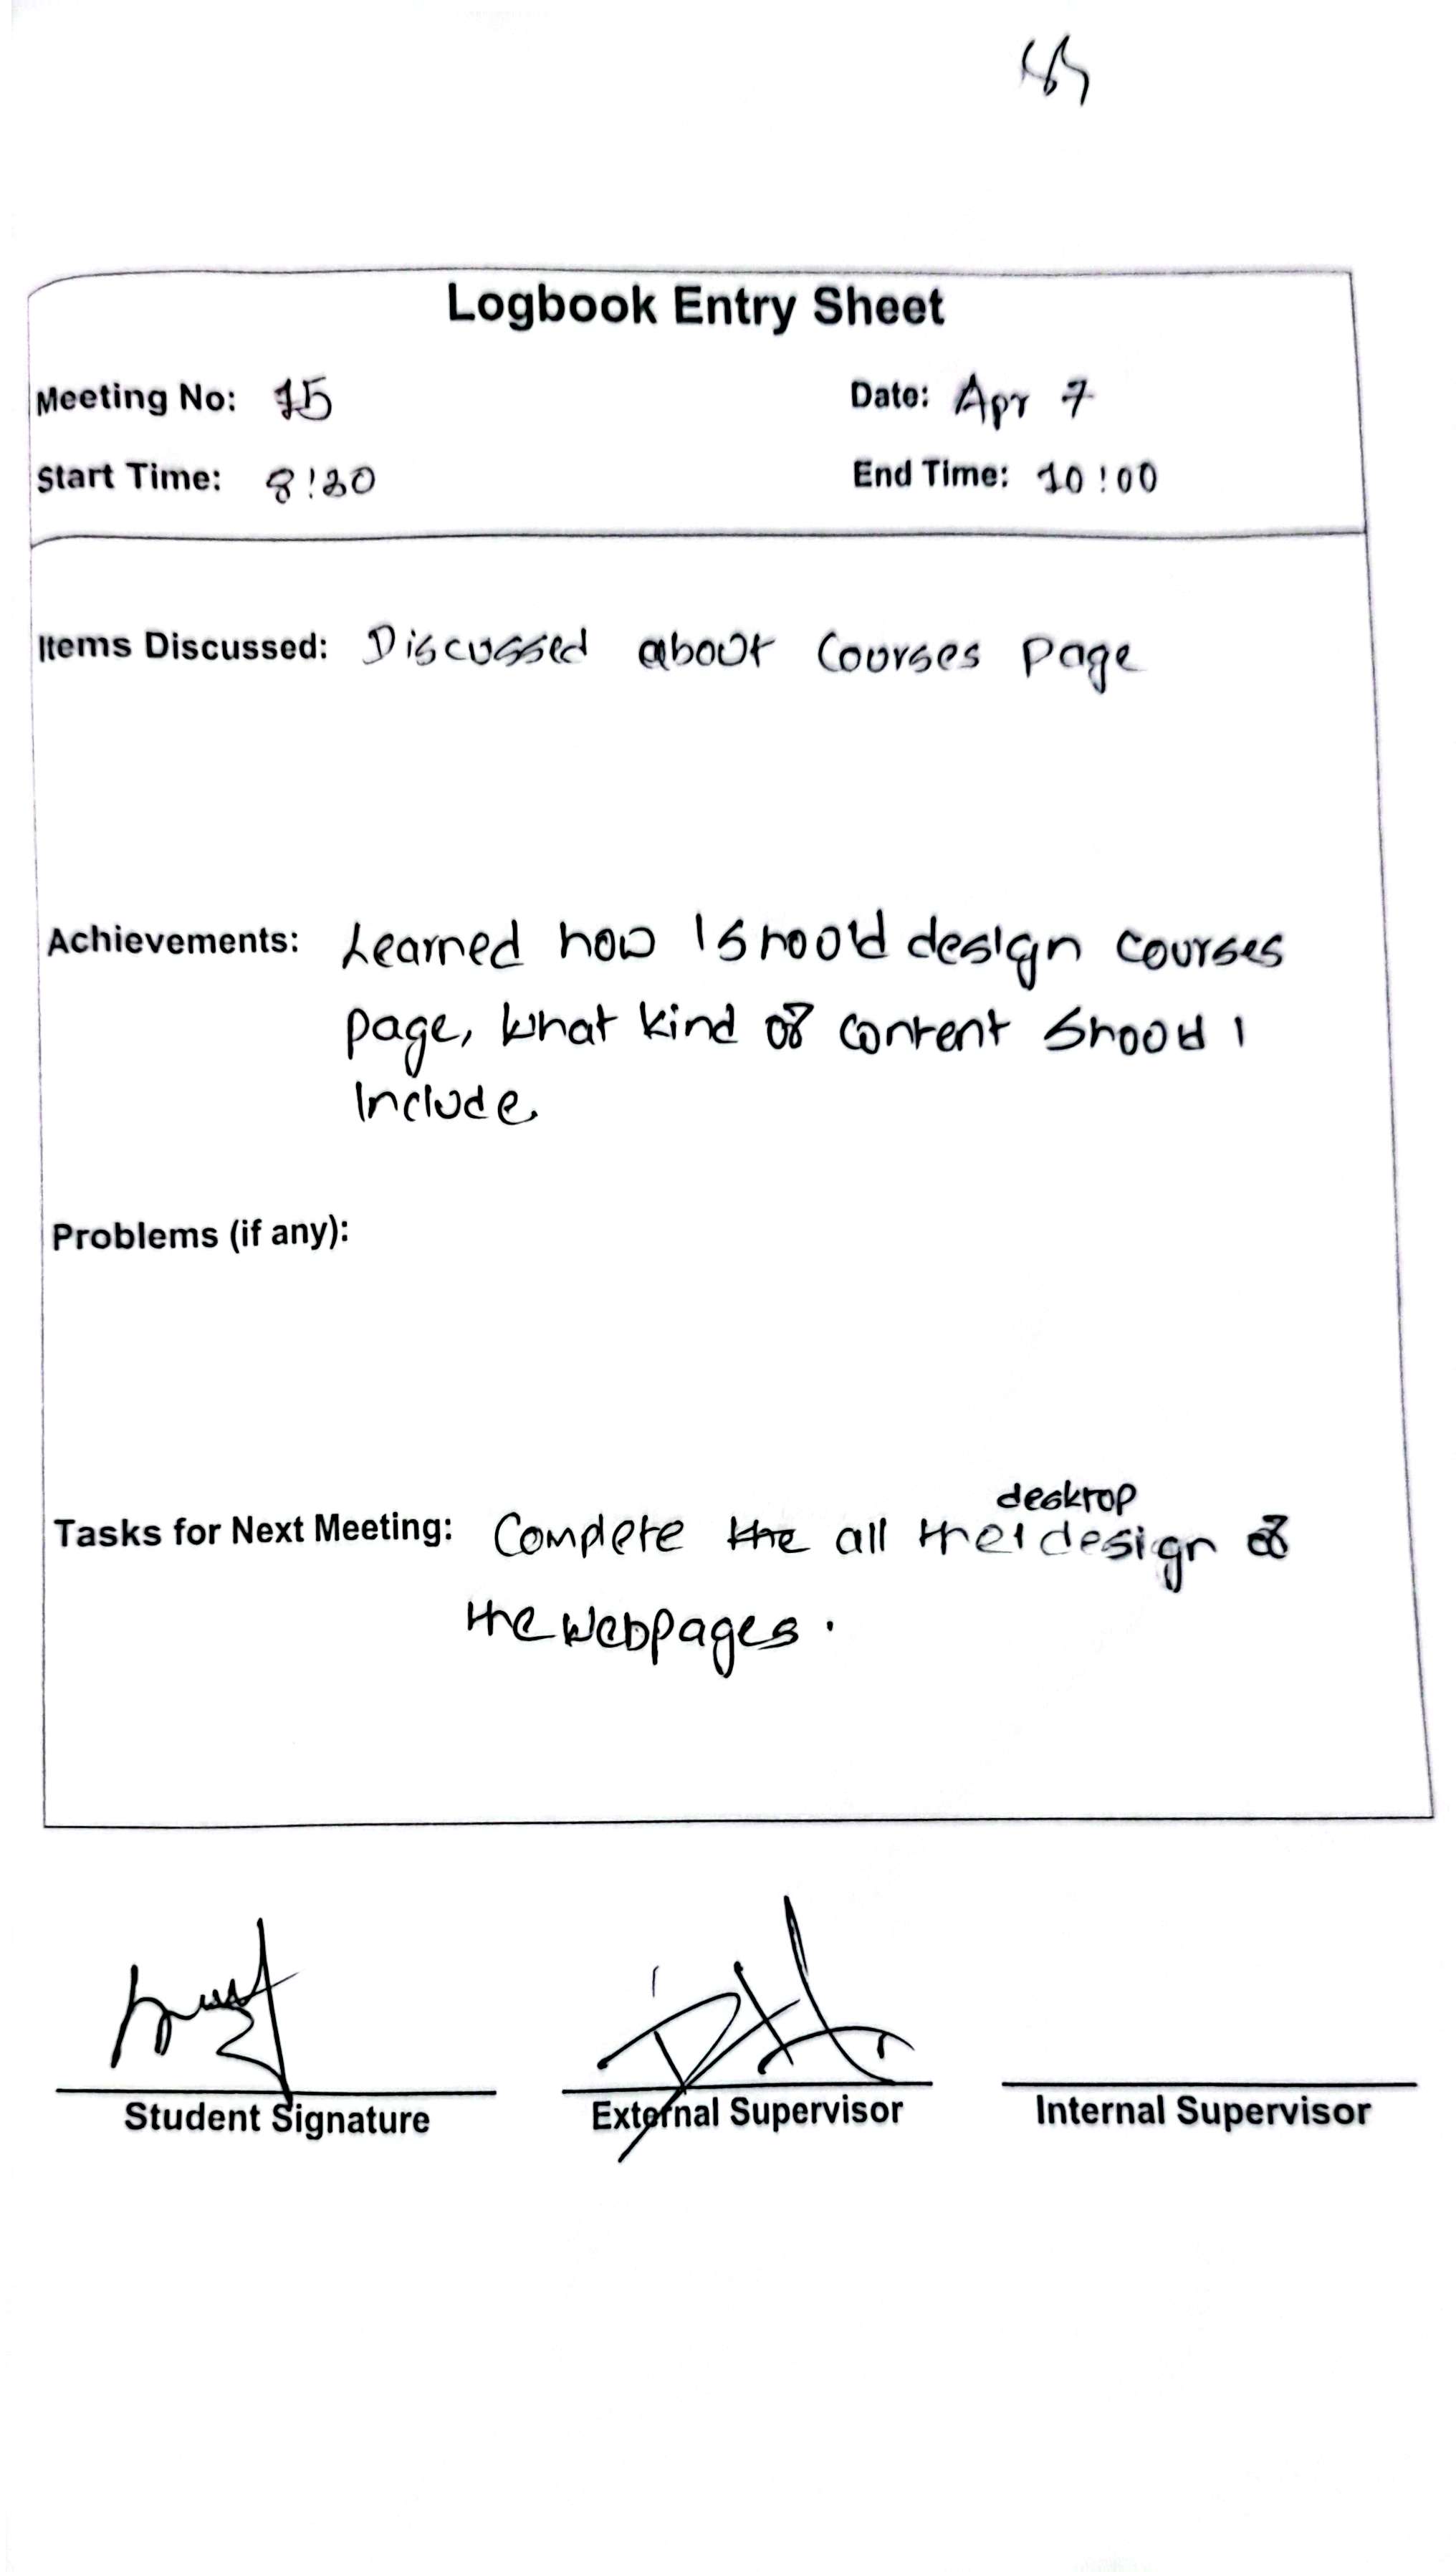 Logbook Entry Sheet
Meeting No: 15 Date: Apr 7
Start Time: 8:30 End Time: 10:00
Items Discussed: Discussed about Courses Page
Achievements: Learned how I should design courses
page, what kind of content should I
include.
Problems (if any):
desktop
Tasks for Next Meeting: Complete the all the design of
the webpages.
Student Signature External Supervisor Internal Supervisor